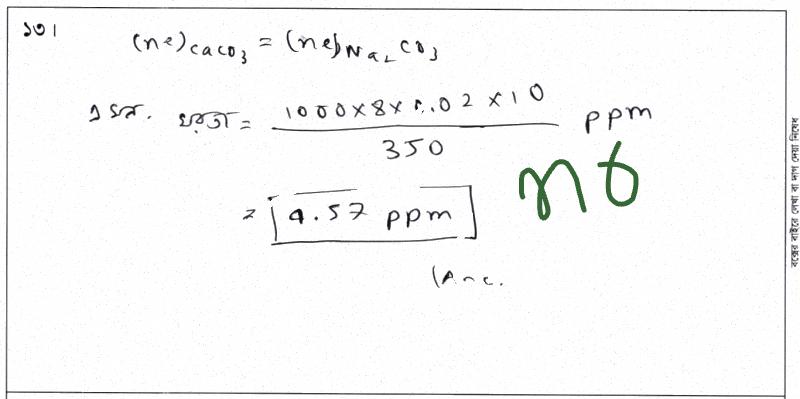 ১৩।
(ne)CaCO3 = (ne)Na2CO3
এখন. খরতা = 1000×8×0.02×10 / 350 ppm
= 4.57 ppm
(Anc.
বক্সের বাইরে লেখা বা দাগ দেয়া নিষেধ